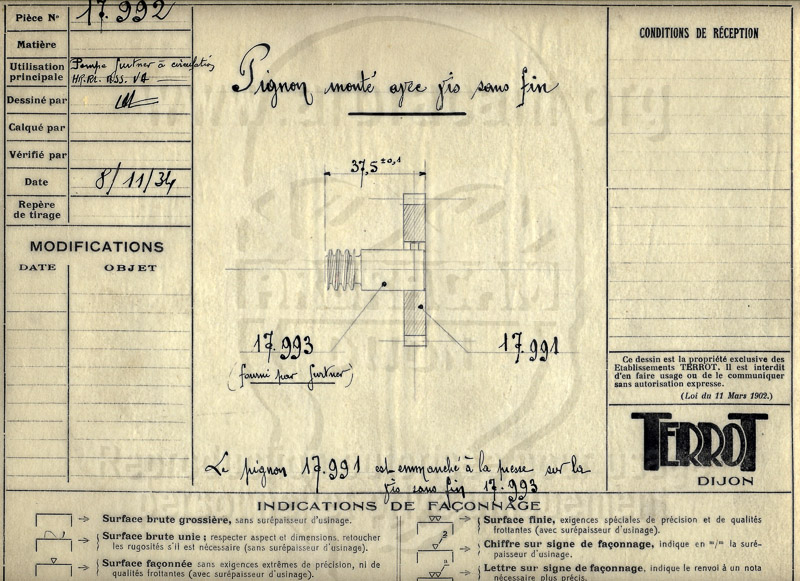 Pièce Nº 17.992
Matière
Utilisation principale Pompe Gurtner à circulation
Dessiné par
Calqué par
Vérifié par
Date 8/11/34
Repère de tirage
MODIFICATIONS
DATE OBJET
Pignon monté avec vis sans fin
37,5 ±0,1
17.993
(fourni par Gurtner)
17.991
Le pignon 17.991 est emmanché à la presse sur la
vis sans fin 17.993
CONDITIONS DE RÉCEPTION
Ce dessin est la propriété exclusive des
Etablissements TERROT. Il est interdit
d'en faire usage ou de le communiquer
sans autorisation expresse.
(Loi du 11 Mars 1902.)
TERROT
DIJON
INDICATIONS DE FAÇONNAGE
Surface brute grossière, sans surépaisseur d'usinage.
Surface brute unie ; respecter aspect et dimensions, retoucher
les rugosités s'il est nécessaire (sans surépaisseur d'usinage).
Surface façonnée sans exigences extrêmes de précision, ni de
qualités frottantes (avec surépaisseur d'usinage).
Surface finie, exigences spéciales de précision et de qualités
frottantes (avec surépaisseur d'usinage).
Chiffre sur signe de façonnage, indique en m/m la suré-
paisseur d'usinage.
Lettre sur signe de façonnage, indique le renvoi à un nota
nécessaire plus précis.